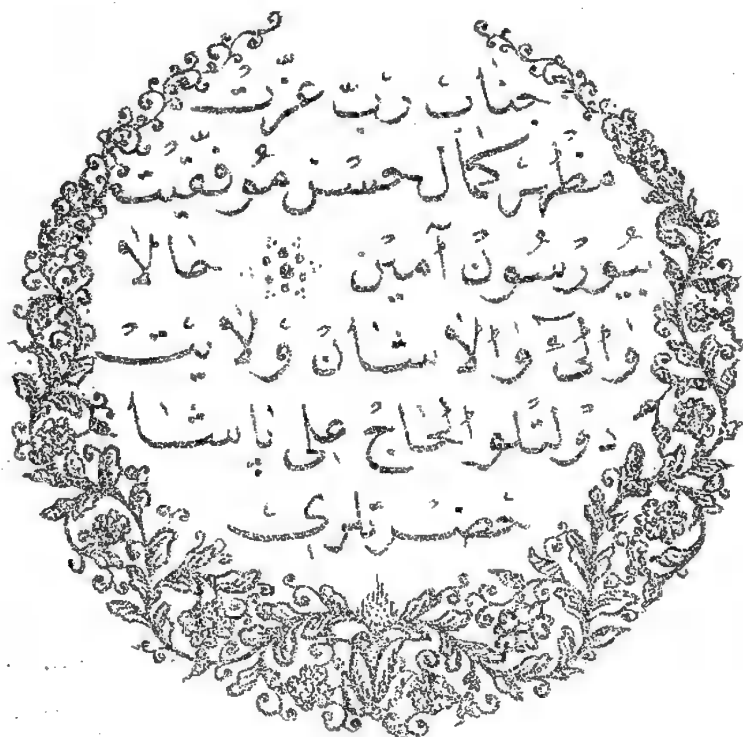 جناب ربّ عزّت
مظهر كمال حسن موفقّيت
بيورسون آمين حالا
والئ والاشان ولايت
دولتلو الحاج علی پاشا
حضرتلری